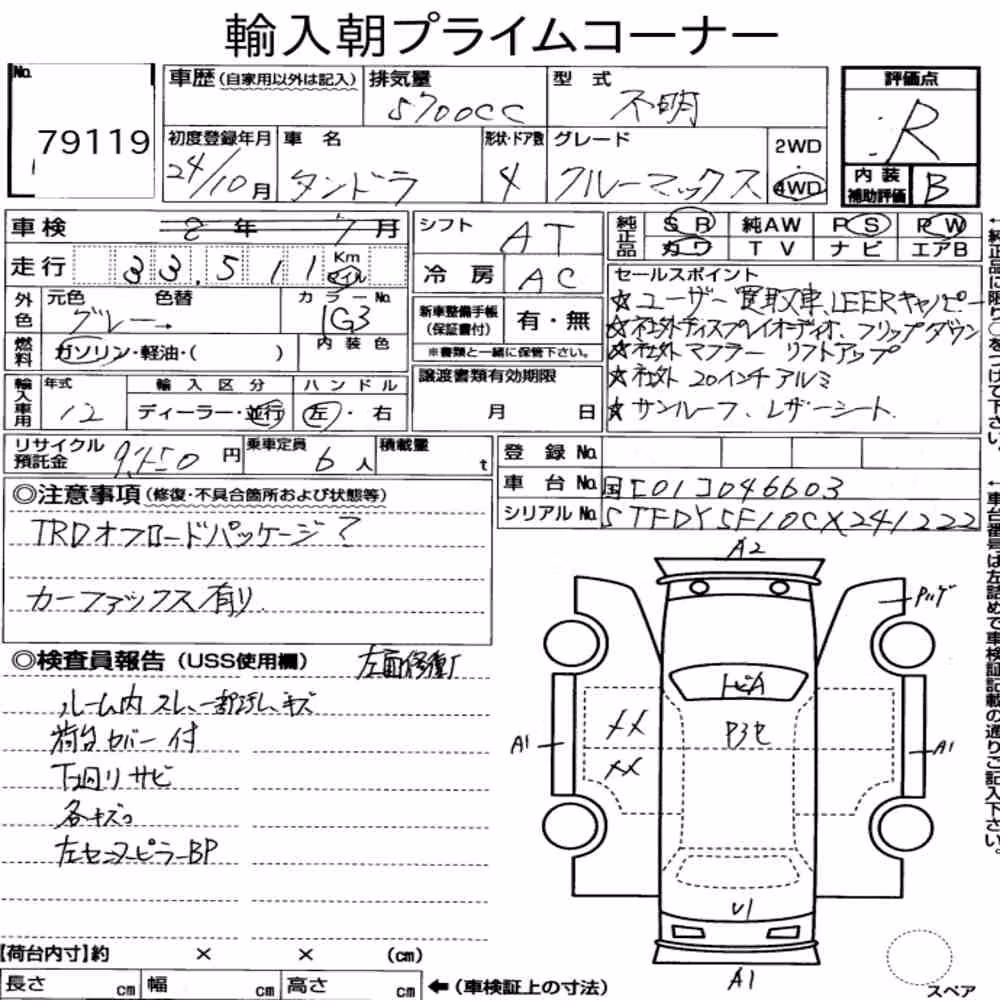 輸入朝プライムコーナー
No. 79119
車歴(自家用以外は記入) 排気量 5700CC 型式 不明
初度登録年月 24/10月 車名 タンドラ 形状・ドア数 4 グレード クルーマックス 2WD・4WD
評価点 R
内装補助評価 B
車検 8年7月
走行 33,511 Km マイル
シフト AT
冷房 AC
純正品 SR 純AW PS PW
カワ TV ナビ エアB
外色 元色 グレー→ 色替 カラーNo. 1G3
燃料 ガソリン・軽油・( ) 内装色
新車整備手帳(保証書付) 有・無
※書類と一緒に保管下さい。
セールスポイント
☆ユーザー買取車、LEERキャノピー
☆社外ディスプレイオーディオ、フリップダウン
☆社外マフラー リフトアップ
☆社外 20インチアルミ
☆サンルーフ、レザーシート
輸入車用 年式 12 輸入区分 ディーラー・並行 ハンドル 左・右
譲渡書類有効期限 月 日
リサイクル預託金 円 乗車定員 6人 積載量 t
登録No.
車台No. 国[01]046603
シリアルNo. 5TFDY5F10CX241222
←純正品に限り○をつけて下さい。
←車台番号は左詰めで車検証記載の通りご記入下さい。
◎注意事項(修復・不具合箇所および状態等)
TRDオフロードパッケージ
カーファックス有り
◎検査員報告(USS使用欄) 左面修復
ルーム内スレ、一部汚し、キズ
荷台カバー付
下廻りサビ
各キズ
左センターピラーBP
A2
トビA
XX
XX
A1
A1
U1
A1
スペア
【荷台内寸】約 × × (cm)
長さ cm 幅 cm 高さ cm ←(車検証上の寸法)